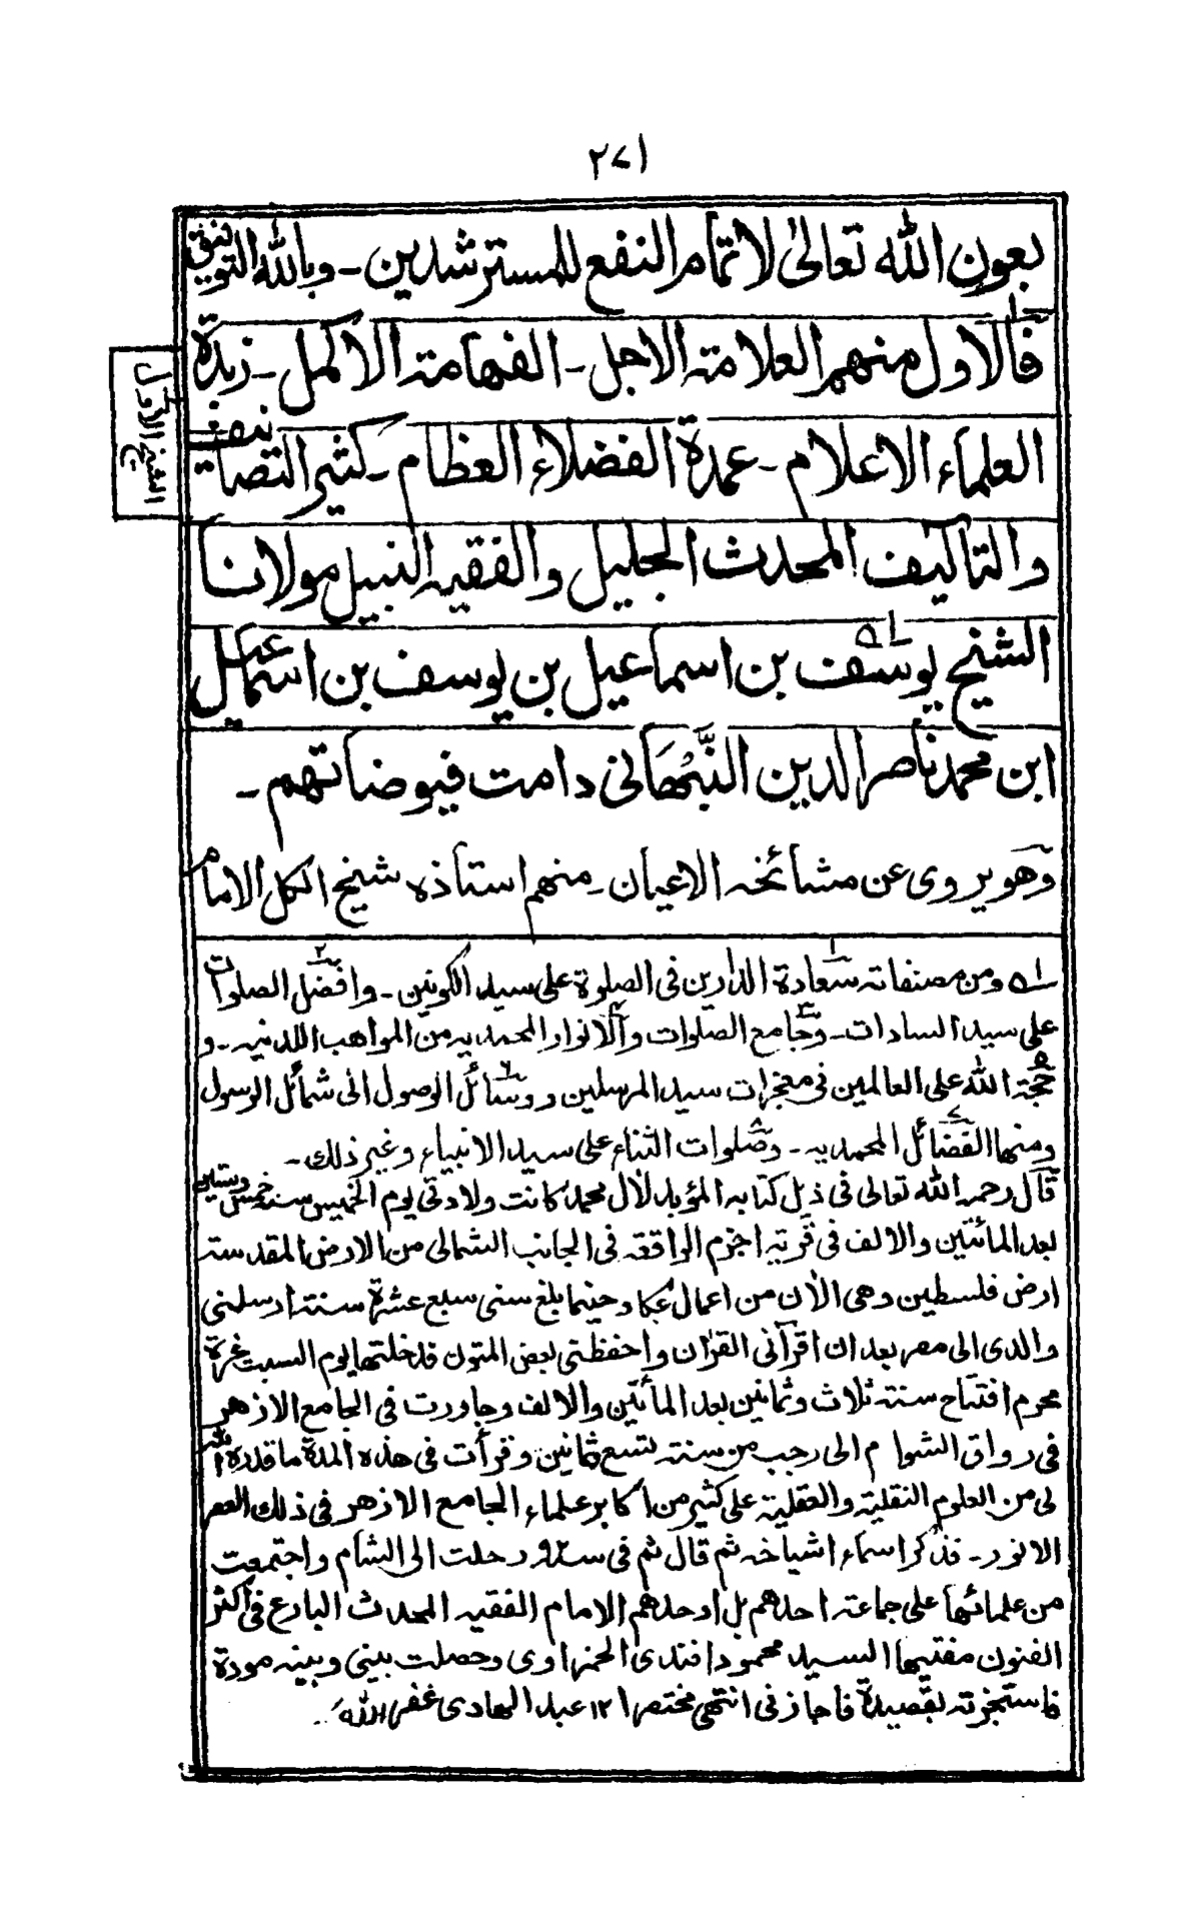 ٢٧١
بعون الله تعالىٰ لاتمام النفع للمسترشدين ـ وبالله التوفيق
فالاول منهم العلامة الاجل ـ الفهامة الاكمل ـ زبدة
الشيخ الاول
العلماء الاعلام ـ عمدة الفضلاء العظام ـ كثير التصانيف
والتاليف المحدث الجليل والفقيه النبيل مولانا
الشيخ يوسف بن اسماعيل بن يوسف بن اسماعيل
ابن محمد ناصر الدين النَّبْهَانى دامت فيوضاتهم ـ
وهو يروى عن مشائخه الاعيان ـ منهم استاذه شيخ الكل الامام
ا ه ومن مصنفاته سعادة الدارين فى الصلوة على سيد الكونين ـ وافضل الصلوات
على سيد السادات ـ وجامع الصلوات والانوار المحمديه من المواهب اللدنيه ـ و
حجة الله على العالمين فى معجزات سيد المرسلين ووسائل الوصول الى شمائل الرسول
ومنها الفضائل المحمديه ـ وصلوات الثناء على سيد الانبياء وغير ذلك ـ
قال رحمه الله تعالى فى ذيل كتابه المؤبد لآل محمد كانت ولادتى يوم الخميس سنة خمس وستين
بعد المائتين والالف فى قرية اجزم الواقعة فى الجانب الشمالى من الارض المقدسة
ارض فلسطين وهى الآن من اعمال عكا وحينما بلغ سنى سبع عشرة سنة ارسلنى
والدى الى مصر بعد ان اقرآنى القرآن واحفظنى بعض المتون فدخلتها يوم السبت غرة
محرم افتتاح سنة ثلاث وثمانين بعد المأتين والالف وجاورت فى الجامع الازهر
فى رواق الشوام الى رجب من سنة تسع ثمانين وقرأت فى هذه المدة ماقدره الله
لى من العلوم النقلية والعقلية على كثير من اكابر علماء الجامع الازهر فى ذلك العصر
الانور ـ فذكر اسماء اشياخه ثم قال ثم فى رحلت الى الشام واجتمعت
من علمائها على جماعة احدهم بل اوحدهم الامام الفقيه المحدث البارع فى اكثر
الفنون مفتيها السيد محمود افندى الحمزاوى وحصلت بينى وبينه مودة
فاستجزته بقصيدة فاجازنى انتهى مختصرا ١٢ عبد الهادى غفر الله له ـ